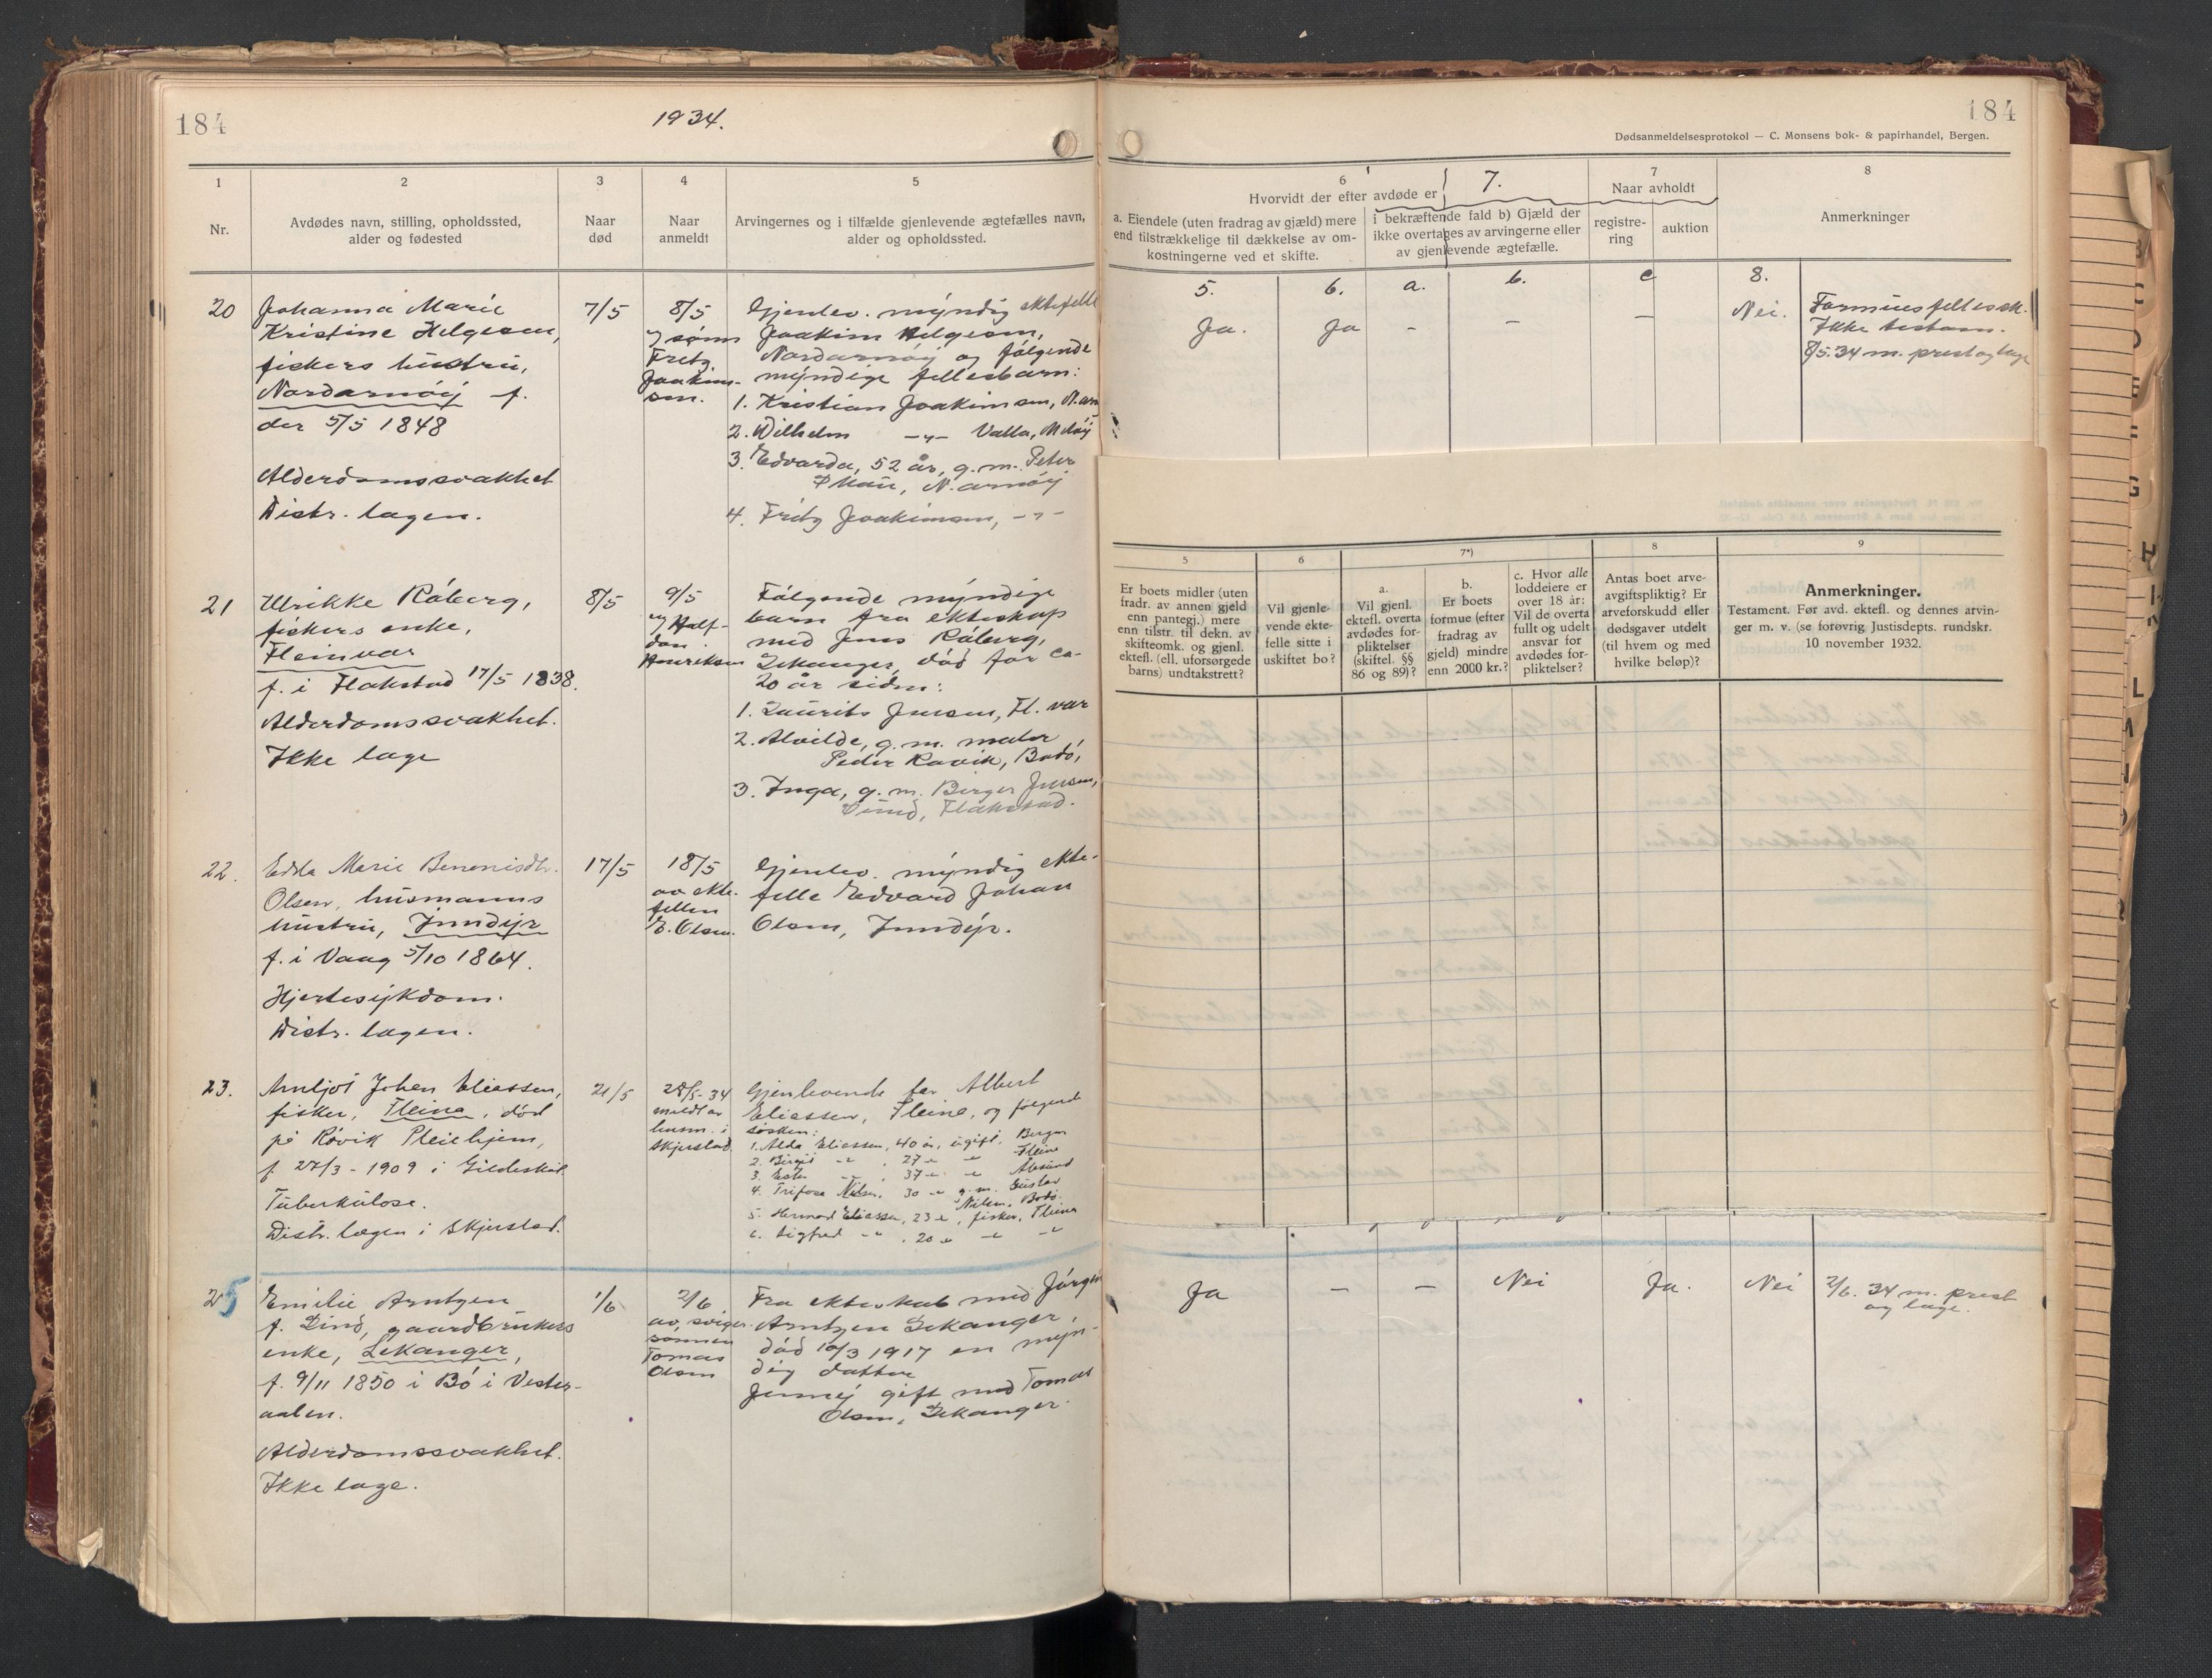 184
1934.
1
2
3
4
5
Nr.
Avdødes navn, stilling, opholdssted,
alder og fødested
Naar
død
Naar
anmeldt
Arvingernes og i tilfælde gjenlevende ægtefælles navn,
alder og opholdssted.
20
Johanna Marie
Kristine Helgesen,
fiskers hustru,
Nordarnøy f.
der 5/5 1848
Alderdomssvakhet
Distr. lægen.
7/5
8/5
v/ sønn
Fritz
Joakim-
sen.
Gjenlev. myndig ektefelle
Joakim Helgesen,
Nordarnøy og følgende
myndige fellesbarn:
1. Kristian Joakimsen, N. arn
2. Wilhelm -"- Valla, Meløy
3. Edvarda, 52 år, g. m. Peter
Skau, N. arnøy
4. Fritz Joakimsen, -"-
21
Ulrikke Råberg,
fiskers enke,
Fleinvær
f. i Flakstad 17/5 1838.
Alderdomssvakhet.
Ikke læge
8/5
9/5
v/ Half-
dan
Henriksen
Følgende myndige
barn fra ekteskap
med Jens Råberg,
Lekanger, død for ca-
20 år siden:
1. Laurits Jensen, Fl. vær
2. Alvilde, g. m. maler
Peder Røvik, Bodø,
3. Inga, g. m. Birger Jensen,
Sund, Flakstad.
22.
Edda Marie Benonisdtr.
Olsen, husmanns
hustru, Inndyr
f. i Vaag 5/10 1864.
Hjertesykdom.
Distr. lægen.
17/5
18/5
av ekte-
fellen
E. Olsen.
Gjenlev. myndig ekte-
felle Edvard Johan
Olsen, Inndyr.
23.
Arnljot Johan Eliassen,
fisker, Fleina, død
på Røvik Pleiehjem,
f. 27/3 - 1909 i Gildeskål.
Tuberkulose.
Distr. lægen i Skjerstad.
21/5
28/5-34
meldt av
lensm. i
Skjerstad.
Gjenlevende far Albert
Eliassen, Fleina, og følgende
søsken:
1. Alda Eliassen, 40 år, ugift, Bergen
2. Birgit -"- , 27 " " Fleina
3. Ester -"- , 37 " " Ålesund
4. Trifosa Nilsen, 30 " g. m. Gustav
Nilsen, Bodø.
5. Hermod Eliassen, 23 ", fisker, Fleina
6. Sigfred -"- , 20 " -"- -"-
25
Emilie Arntzen
f. Lind, gaardbrukers
enke, Lekanger,
f. 9/11 1850 i Bø i Vester-
aalen.
Alderdomssvakhet.
Ikke læge.
1/6
2/6
av sviger-
sønnen
Tomas
Olsen
Fra ekteskab med Jørgen
Arntzen Lekanger,
død 10/3 1917 en myn-
dig datter
Jenny gift med Tomas
Olsen, Lekanger.
184
Dødsanmeldelsesprotokol — C. Monsens bok- & papirhandel, Bergen.
6
7.
7
8
Hvorvidt der efter avdøde er
Naar avholdt
a. Eiendele (uten fradrag av gjæld) mere
end tilstrækkelige til dækkelse av om-
kostningerne ved et skifte.
i bekræftende fald b) Gjæld der
ikke overtages av arvingerne eller
av gjenlevende ægtefælle.
registre-
ring
auktion
Anmerkninger
5.
6.
a.
b.
c
8.
Ja.
Ja
-
-
-
Nei.
Formuesfellessk.
Ikke testam.
8/5.34 m. prest og læge
5
6
7*)
8
9
Er boets midler (uten
fradr. av annen gjeld
enn pantegj.) mere
enn tilstr. til dekn. av
skifteomk. og gjenl.
ektefl. (ell. uforsørgede
barns) undtakstrett?
Vil gjenle-
vende ekte-
felle sitte i
uskiftet bo?
a.
Vil gjenl.
ektefl. overta
avdødes for-
pliktelser
(skiftel. §§
86 og 89)?
b.
Er boets
formue (efter
fradrag av
gjeld) mindre
enn 2000 kr.?
c. Hvor alle
loddeiere er
over 18 år:
Vil de overta
fullt og udelt
ansvar for
avdødes for-
pliktelser?
Antas boet arve-
avgiftspliktig? Er
arveforskudd eller
dødsgaver utdelt
(til hvem og med
hvilke beløp)?
Anmerkninger.
Testament. Før avd. ektefl. og dennes arvin-
ger m. v. (se forøvrig Justisdepts. rundskr.
10 november 1932.
Ja
-
-
Nei
Ja.
Nei
2/6. 34 m. prest
og læge.